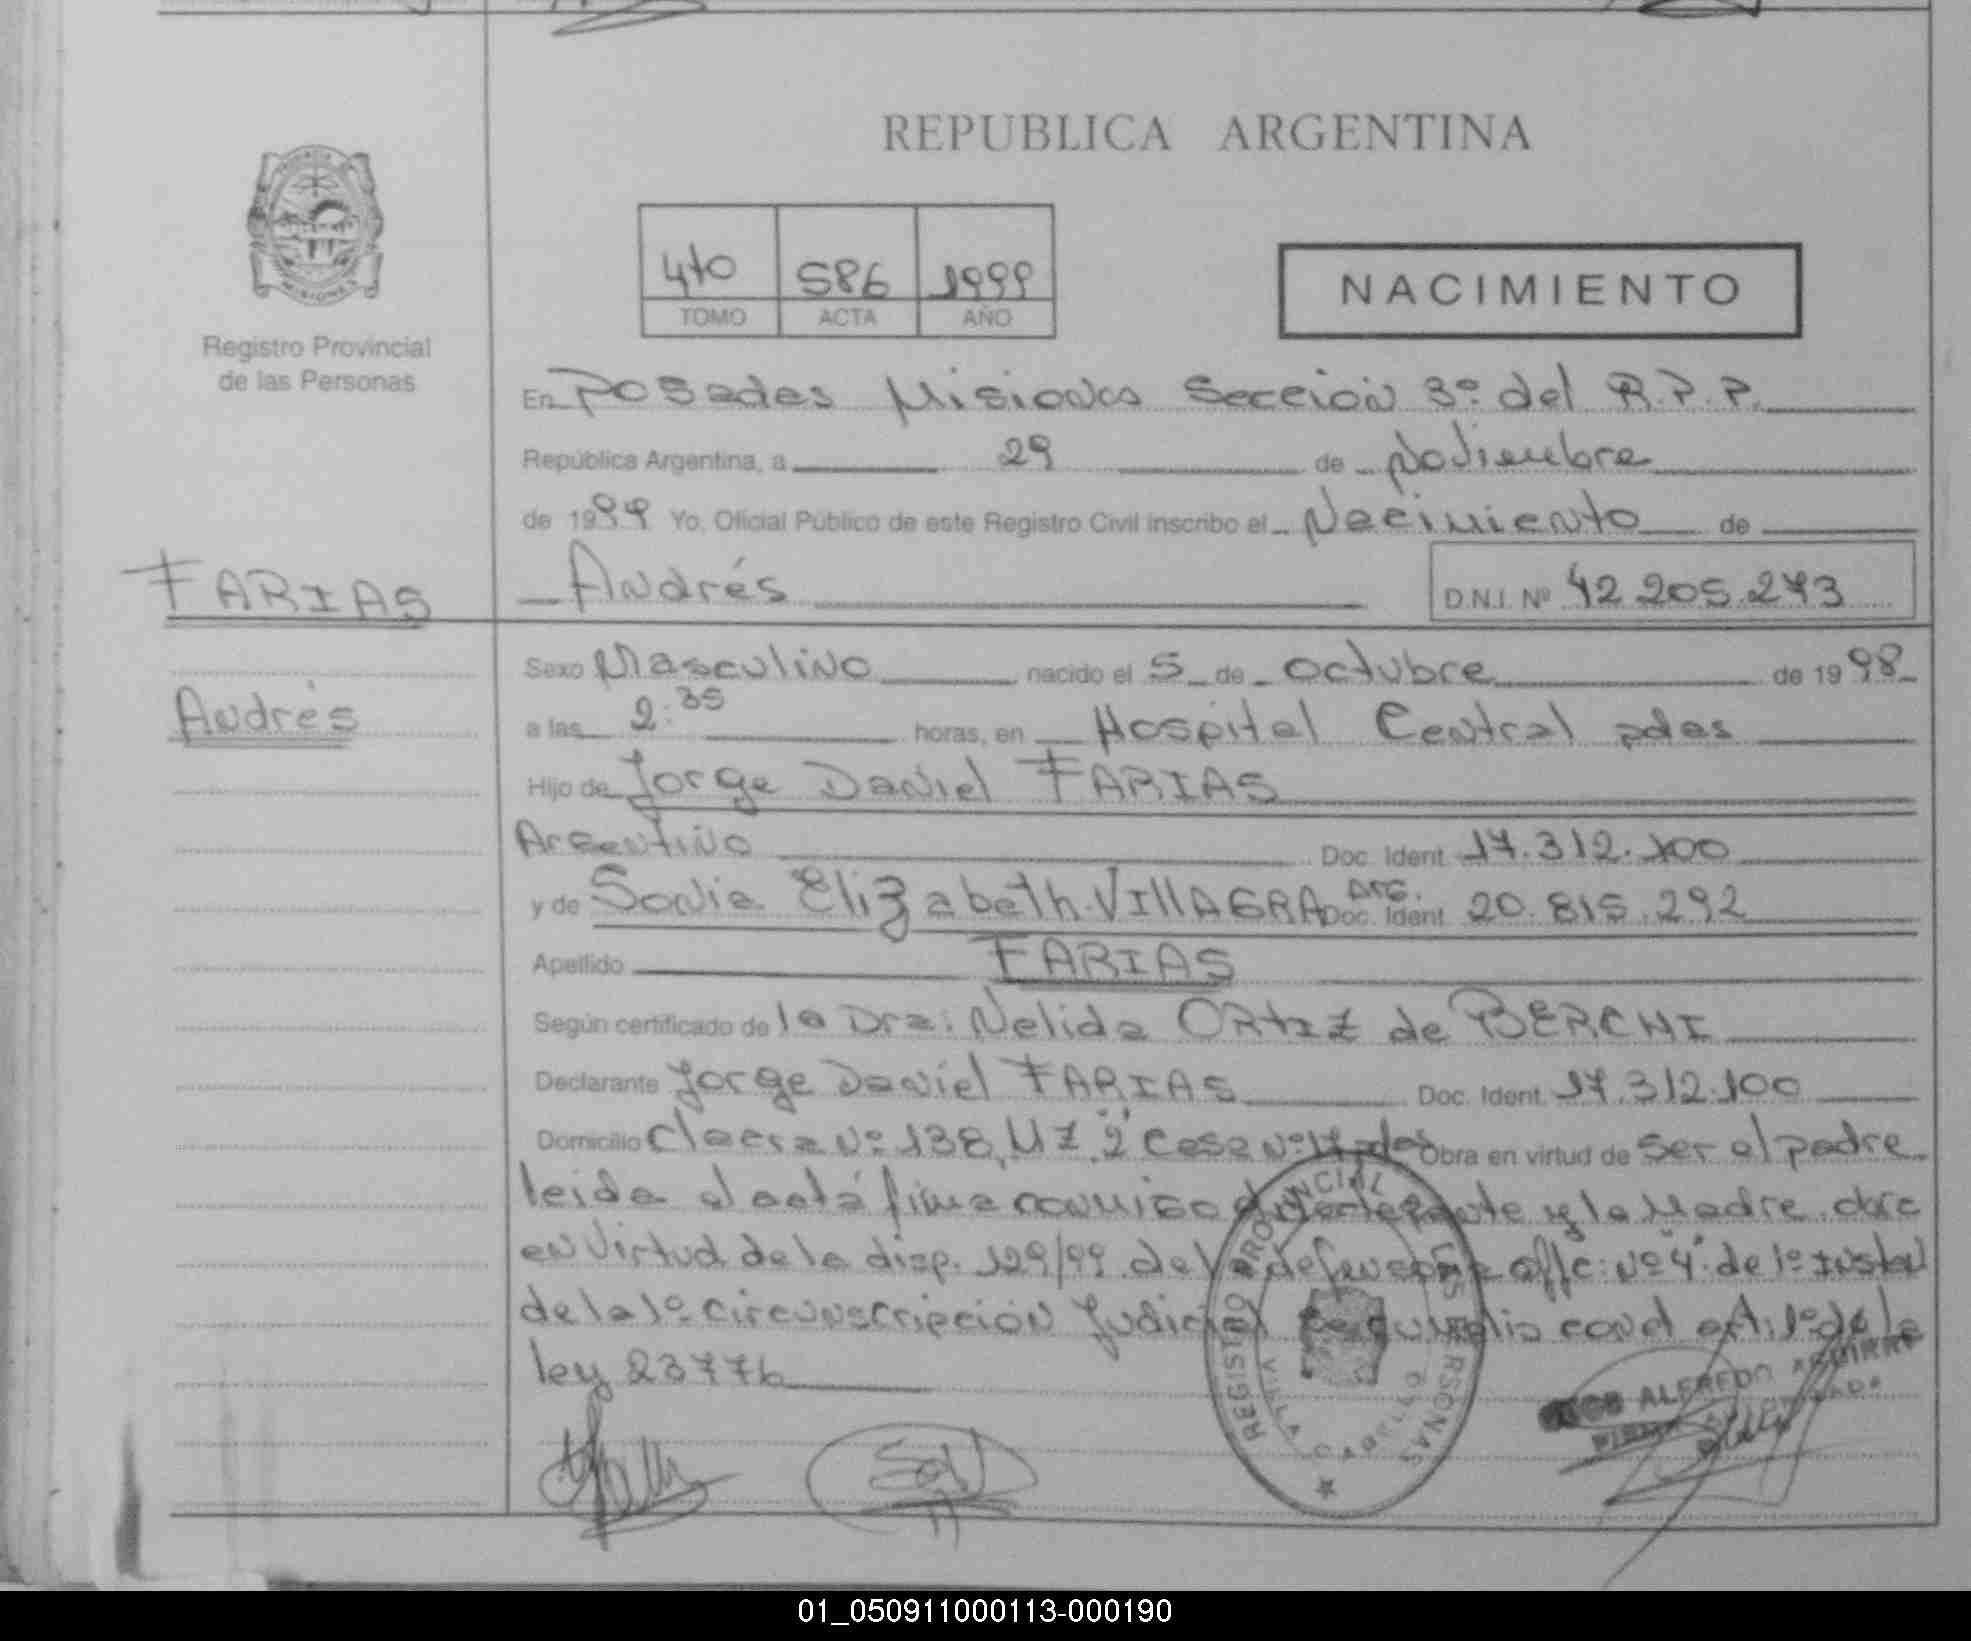 REPUBLICA ARGENTINA
MISIONES
Registro Provincial
de las Personas
410 586 1999
TOMO ACTA AÑO
NACIMIENTO
En Posadas Misiones Sección 3º del R.P.P.
República Argentina, a 29 de Noviembre
de 1999 Yo, Oficial Público de este Registro Civil inscribo el Nacimiento de
FARIAS
Andrés
D.N.I. Nº 42 205.273
Sexo Masculino nacido el 5 de octubre de 1998
Andrés
a las 2:35 horas, en Hospital Central pdas
Hijo de Jorge Daniel FARIAS
Argentino Doc. Ident. 17.312.100
y de Sonia Elizabeth VIllAGRA Arg. Doc. Ident. 20.815.292
Apellido FARIAS
Según certificado de la Dra: Nelida ORtIZ de BERCHI
Declarante Jorge Daniel FARIAS Doc. Ident. 17.312.100
Domicilio Chacra Nº 138, MZ "2" Casa Nº 17 pdas Obra en virtud de ser el padre
leida el acta firma conmigo el declarante y la Madre obra
en Virtud de la disp. 129/99 de la defensoria offc: Nº "4" de 1º
de la 1º circunscripción Judicial cond art. 1º de la
ley 23776
REGISTRO PROVINCIAL DE LAS PERSONAS
VILLA CABELLO
ALFREDO AGUIRRE
01_050911000113-000190